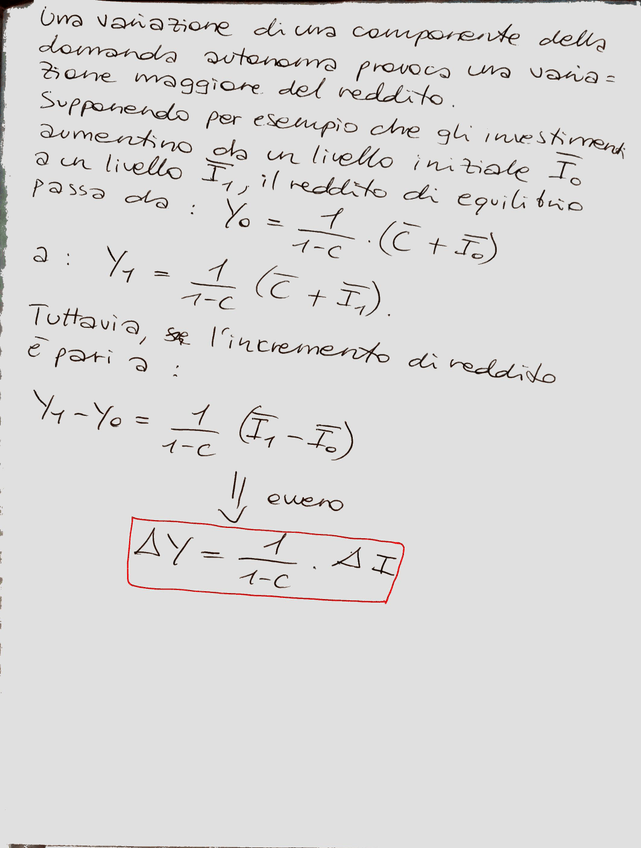 Una variazione di una componente della
domanda autonoma provoca una varia=
zione maggiore del reddito.
Supponendo per esempio che gli investimenti
aumentino da un livello iniziale I̅₀
a un livello I̅₁, il reddito di equilibrio
passa da : Y₀ = 1/(1-c) · (C̅ + I̅₀)
a : Y₁ = 1/(1-c) (C̅ + I̅₁).
Tuttavia, l'incremento di reddito
è pari a :
Y₁ - Y₀ = 1/(1-c) (I̅₁ - I̅₀)
⇓ ovvero
ΔY = 1/(1-c) · ΔI